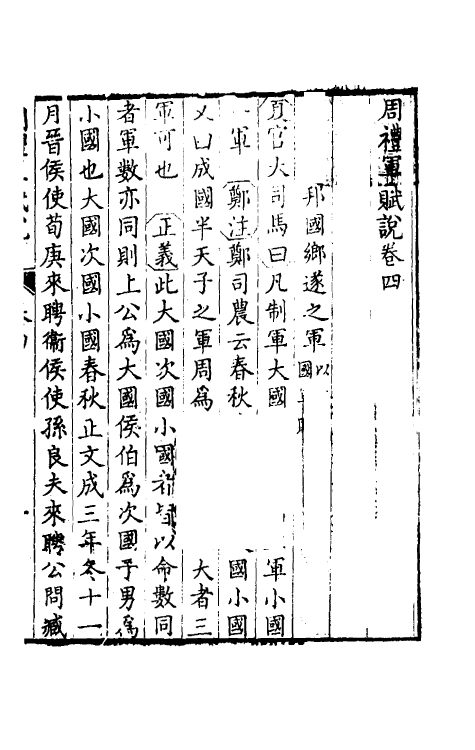 周禮軍賦說卷四
邦國鄉遂之軍以國
夏官大司馬曰凡制軍大國軍小國
一軍 鄭注鄭司農云春秋國小國
又曰成國半天子之軍周爲大者三
軍可也 正義此大國次國小國者皆以命數同
者軍數亦同則上公爲大國侯伯爲次國子男爲
小國也大國次國小國春秋正文成三年冬十一
月晉侯使荀庚來聘衞侯使孫良夫來聘公問臧